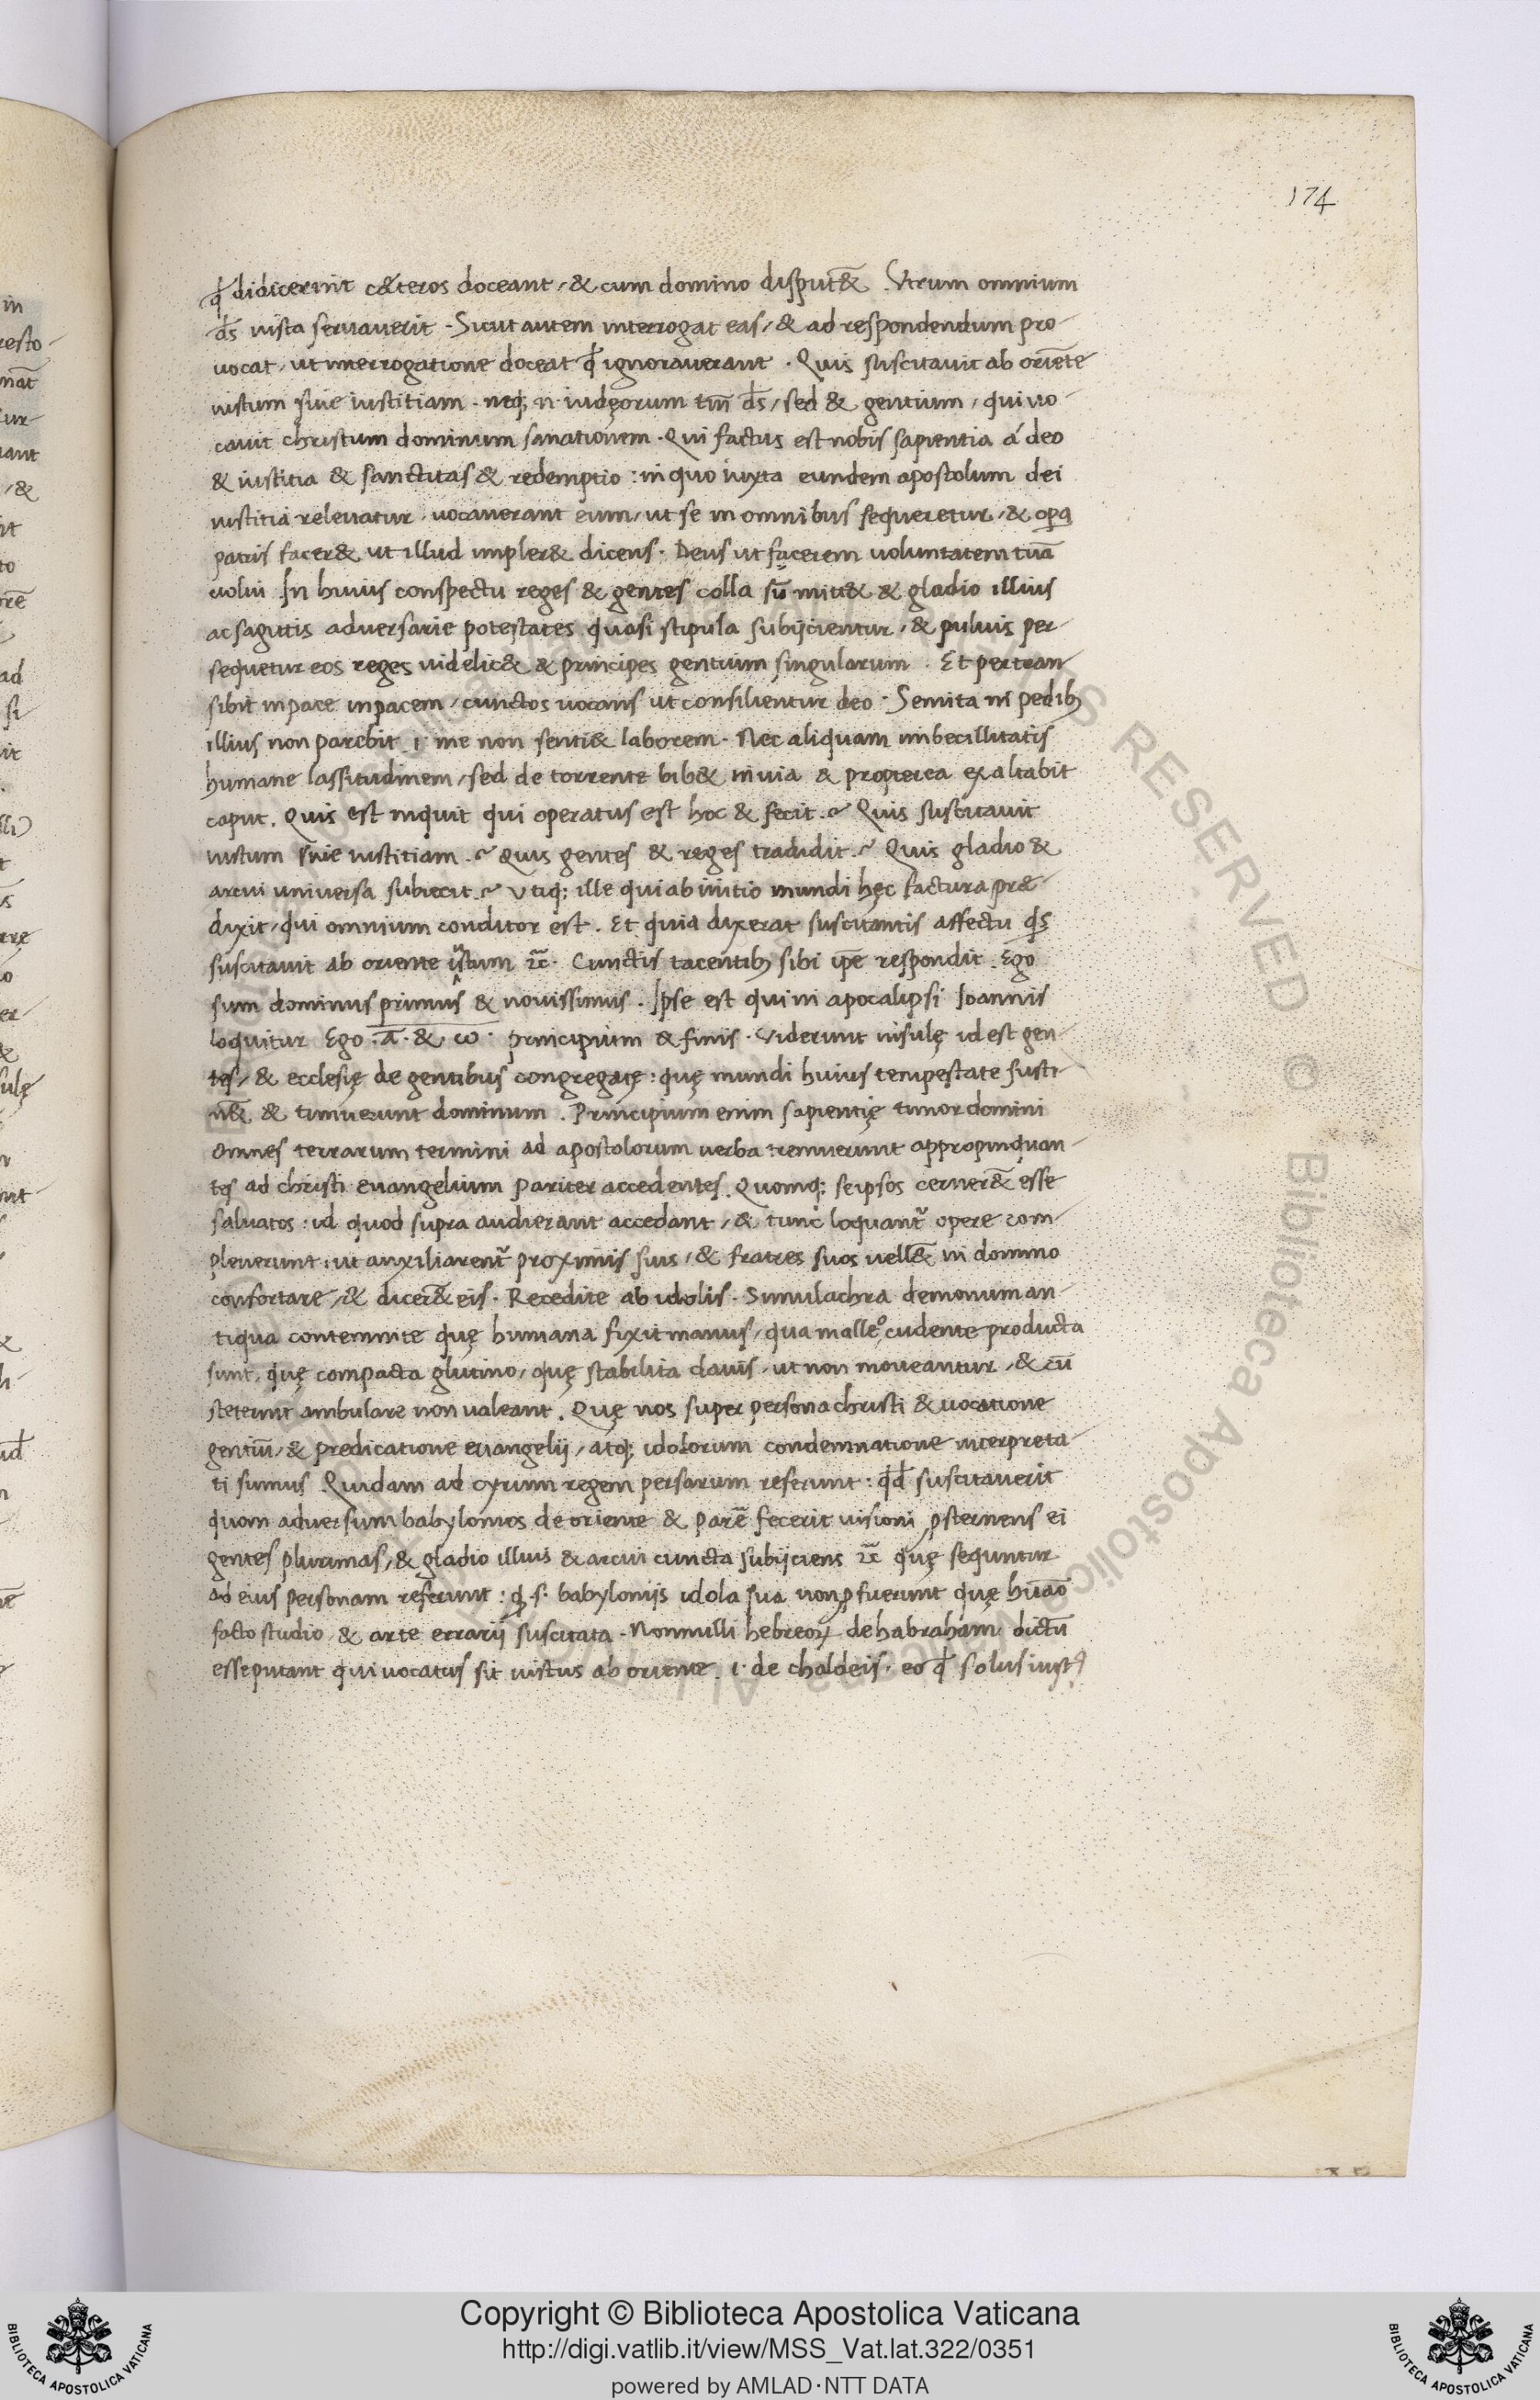 174
qđ didicerint cæteros doceant, & cum domino disput&̄. Vtrum omnium
ds̄ iusta seruauerit. Sicut autem interrogat eas, & ad respondendum pro-
uocat, ut interrogatione doceat qđ ignorauerant. Quis suscitauit ab oriēte
iustum siue iustitiam. neq; n̄ iudęorum tm̄ ds̄, sed & gentium, qui uo-
cauit christum dominum sanationem. Qui factus est nobis sapientia á deo
& iustitia & sanctitas & redemptio: in quo iuxta eundem apostolum dei
iustitia releuatur. uocauerant eum, ut se in omnibus sequeretur, & opa
patris facer& ut illud impler& dicens. Deus ut facerem uoluntatem tuā
uolui. In huius conspectu reges & gentes colla sū mitt& & gladio illius
ac sagittis adversarie potestates quasi stipula subijcientur, & puluis per-
sequetur eos reges uidelic& & principes gentium singularum. Et pertran-
sibit in pace in pacem, cunctos uocans ut consilientur deo. Semita in pedib;
illius non parebit .i. me non senti& laborem. Nec aliquam imbecillitatis
humane lassitudinem, sed de torrente bib& in uia & propterea exaltabit
caput. Quis est inquit qui operatus est hoc & fecit.~ Quis suscitauit
iustum siue iustitiam.~ Quis gentes & reges tradidit.~ Quis gladio &
arcui universa subiecit.~ Vtiq; ille qui ab initio mundi hęc factura præ-
dixit, qui omnium conditor est. Et quia dixerat suscitantis affectu qs̄
suscitauit ab oriente iustum ⁊c̄. Cunctis tacentib; sibi ipē respondit. Ego
sum dominus primus & nouissimus. Ipse est qui in apocalipsi Ioannis
loquitur Ego .ā. & ω̄. principium & finis. Viderunt insulę id est gen-
tes, & ecclesię de gentibus congregatę: quę mundi huius tempestate susti-
n&̄ & timuerunt dominum. Principium enim sapientię timor domini
omnes terrarum termini ad apostolorum uerba tremuerunt appropinquan-
tes ad christi euangelium pariter accedentes. Quomq; seipsos cerner&̄ esse
saluatos: id quod supra audierant accedant, & tunc loquant~ opere com-
pleuerunt: ut auxiliarent~ proximis suis, & fratres suos uell&̄ in domino
confortare, & dicer&̄ eis. Recedite ab idolis. Simulachra demonum an-
tiqua contemnite quę humana fixit manus, qua malleo cudente producta
sunt, quę compacta glutino, quę stabilita clauis, ut non moueantur, & cū
steterint ambulare non ualeant. Quę nos super persona christi & uocatione
gentiū, & predicatione euangelij, atq; idolorum condemnatione interpreta-
ti sumus. Quidam ad cyrum regem persarum referunt: qđ suscitauerit
quom adversum babylonios de oriente & parē fecerit uisioni ꝓsternens ei
gentes plurimas, & gladio illius & arcui cuncta subijciens ⁊c̄ quę sequntur
ad eius personam referunt: q .s. babylonijs idola sua non ꝓfuerunt quę huāo
facto studio & arte errarij suscitata. Nonnulli hebreoꝝ de habraham dictū
esse putant qui uocatus sit iustus ab oriente .i. de chaldeis. eo qđ solus iustꝰ
Copyright © Biblioteca Apostolica Vaticana
http://digi.vatlib.it/view/MSS_Vat.lat.322/0351
powered by AMLAD·NTT DATA